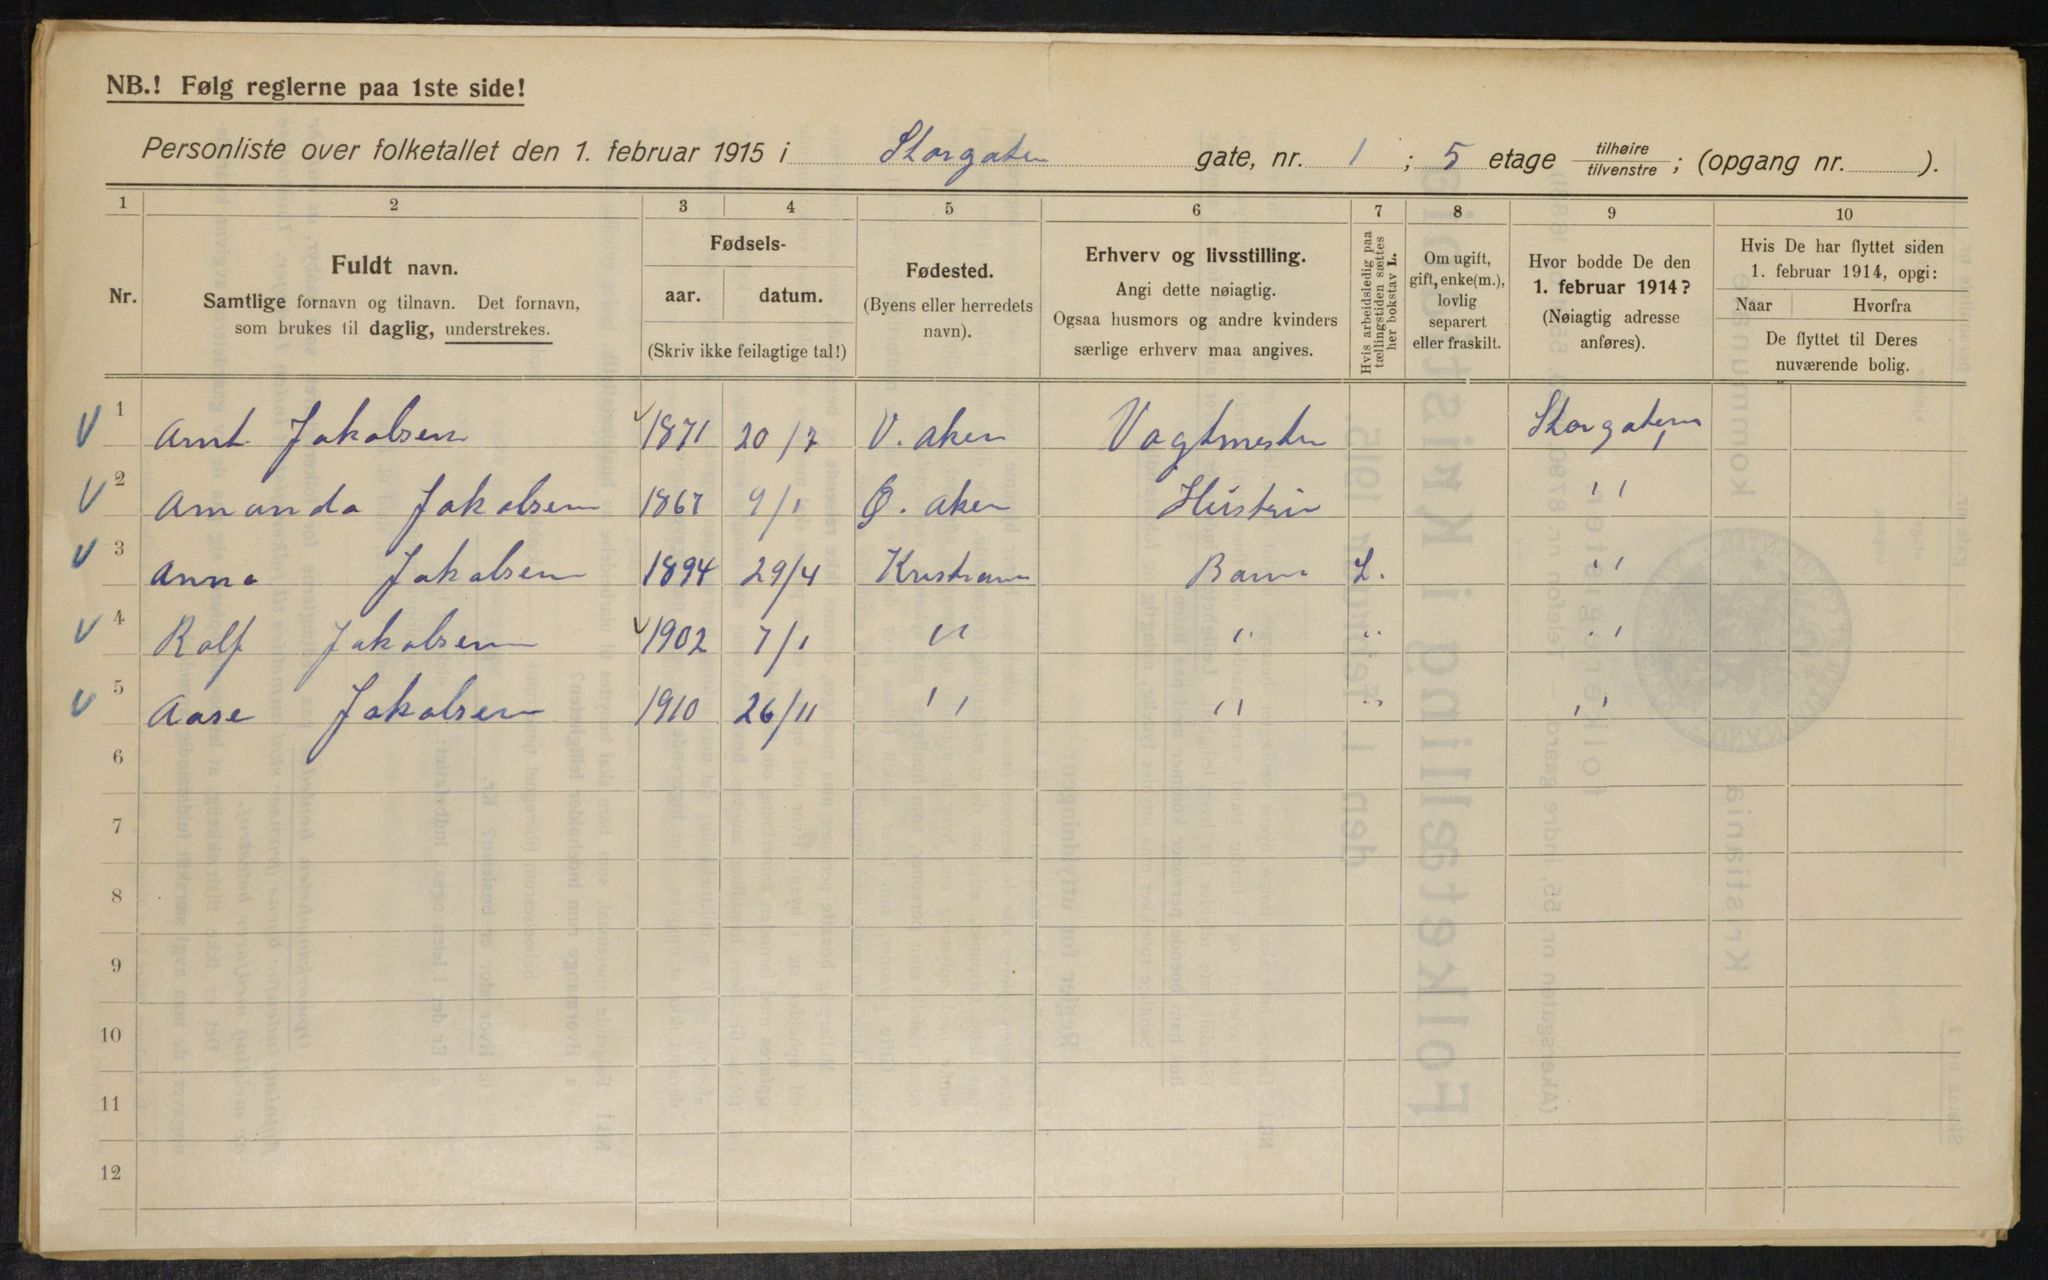 NB.! Følg reglerne paa 1ste side!
Personliste over folketallet den 1. februar 1915 i Storgaten gate, nr. 1; 5 etage tilhøire / tilvenstre; (opgang nr. ).
1 2 3 4 5 6 7 8 9 10
Nr.
Fuldt navn.
Samtlige fornavn og tilnavn. Det fornavn,
som brukes til daglig, understrekes.
Fødsels-
aar. datum.
(Skriv ikke feilagtige tal!)
Fødested.
(Byens eller herredets
navn).
Erhverv og livsstilling.
Angi dette nøiagtig.
Ogsaa husmors og andre kvinders
særlige erhverv maa angives.
Hvis arbeidsledig paa
tællingstiden sættes
her bokstav L.
Om ugift,
gift, enke(m.),
lovlig
separert
eller fraskilt.
Hvor bodde De den
1. februar 1914?
(Nøiagtig adresse
anføres).
Hvis De har flyttet siden
1. februar 1914, opgi:
Naar Hvorfra
De flyttet til Deres
nuværende bolig.
1 Arnt Jakobsen 1871 20/7 V. Aker Vagtmester Storgaten 1
2 Amanda Jakobsen 1867 9/1 Ø. Aker Hustru "
3 Anna Jakobsen 1894 29/4 Kristiania Barn L. "
4 Rolf Jakobsen 1902 7/1 " " " "
5 Aase Jakobsen 1910 26/11 " " " "
6
7
8
9
10
11
12